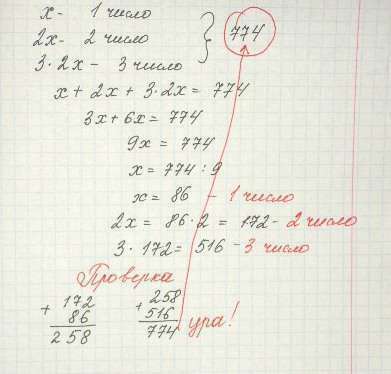 x - 1 число
2x - 2 число
3·2x - 3 число
774
x + 2x + 3·2x = 774
3x + 6x = 774
9x = 774
x = 774 : 9
x = 86 - 1 число
2x = 86·2 = 172 - 2 число
3·172 = 516 - 3 число
Проверка
+ 172
86
258
+ 258
516
774 ура!